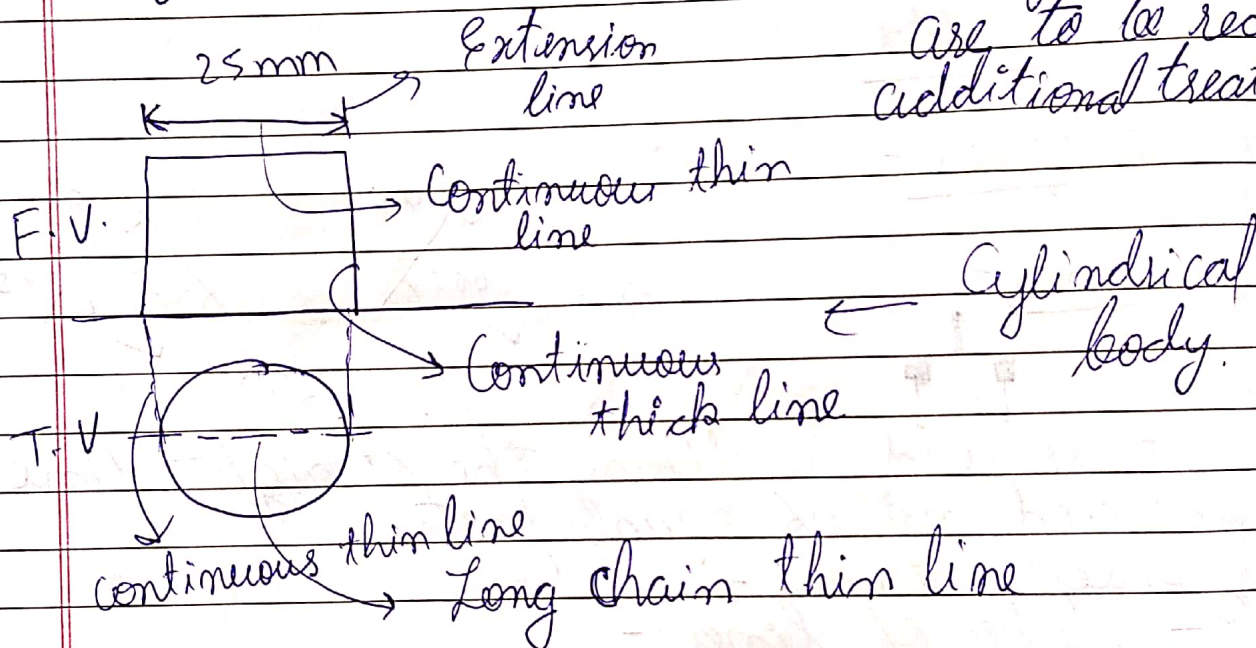 25mm
Extension
line
are to be
additional
Continuous thin
line
F.V.
Cylindrical
body.
Continuous
thick line
T.V
continuous thin line
Long chain thin line